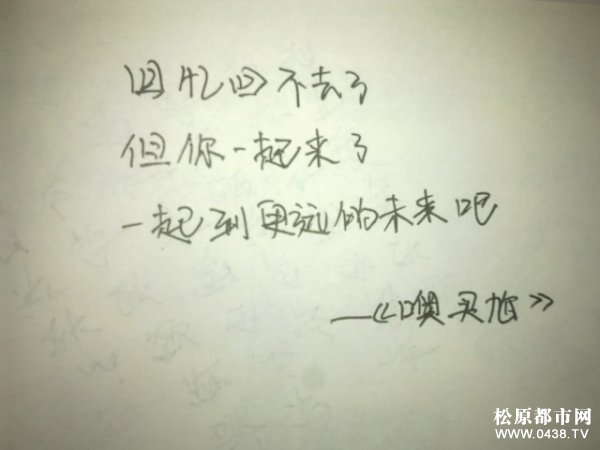 回忆回不去了
但你一起来了
一起到更远的未来吧
—《噢买尬》
松原都市网
WWW.0438.TV